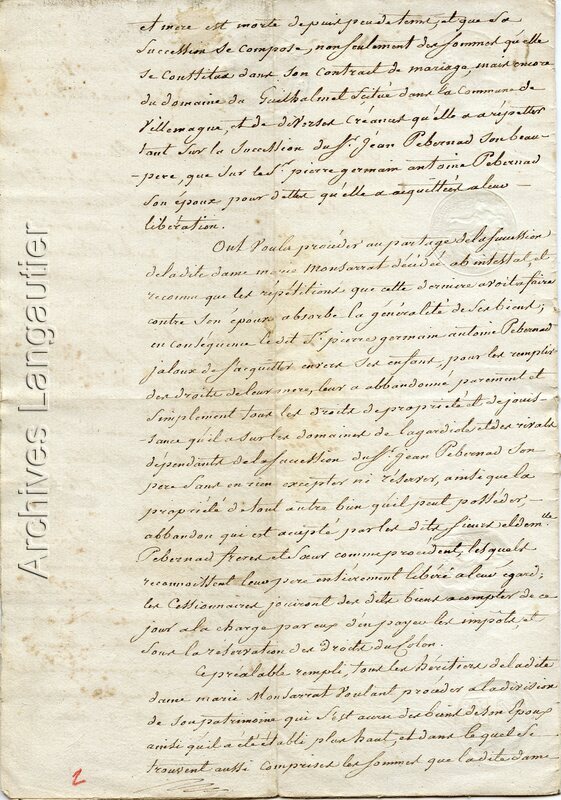 et mere est morte depuis peu de tems, et que sa
succession se compose, non seulement des sommes qu'elle
se constitua dans son contrat de mariage, mais encore
du domaine du Guilhalmet scitué dans la Commune de
Villemagne, et de diverses créances qu'elle a a répetter
tant sur la succession du Sr. Jean Pebernad son beau-
-pere, que sur le Sr. pierre germain antoine Pebernad
son époux pour dettes qu'elle a aquittées a leur
libération.
Ont voulu procéder au partage de la succession
de la dite dame marie Monsarrat décédée ab intestat, et
reconnu que les répétitions que cette derniere avoit a faire
contre son époux absorbe la généralité de ses biens;
en conséquence le dit Sr. pierre germain antoine Pebernad
jaloux de s'acquitter envers ses enfans, pour les remplir
des droits de leur mere, leur a abandonné purement et
simplement tous les droits de propriété et de jouis-
-sance qu'il a sur les domaines de lagardiole et des rivals
dépendants de la succession du Sr. Jean Pebernad son
pere sans en rien excepter ni réserver, ainsi que la
propriété de tout autre bien qu'il peut posséder,
abandon qui est acepté par les dits sieurs et demlle.
Pebernad freres et sœur comme procedent, lesquels
reconnoissent leur pere entièrement libéré a leur égard;
les Cessionnaires jouiront des dits biens a compter de ce
jour a la charge par eux d'en payer les impôts et
sous la reservation des droits du Colon.
Ce préalable rempli, tous les héritiers de la dite
dame marie Monsarrat voulant procéder a la division
de son patrimoine qui s'est acru des biens de son époux
ainsi qu'il a été établi plus haut, et dans lequel se
trouvent aussi comprises les sommes que la dite dame
2
Archives Langautier